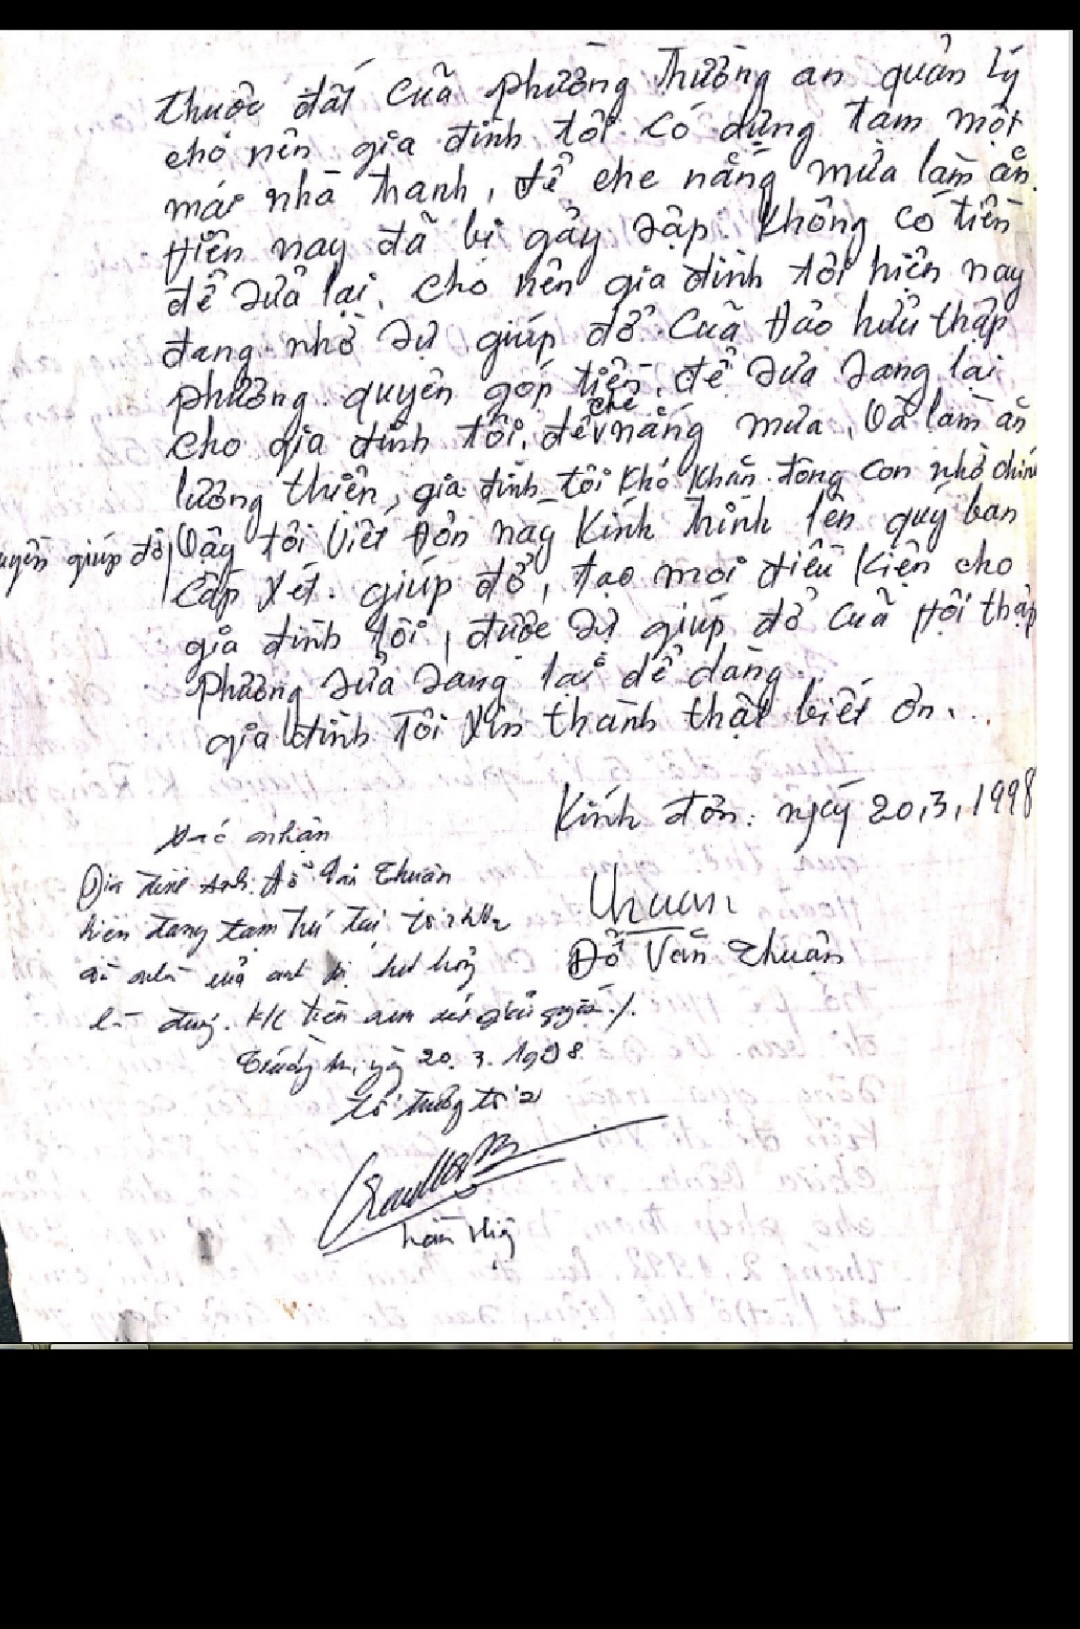 thuộc đất cũa phường Trường an quản lý
cho nên gia đình tôi có dựng tạm một
mái nhà tranh, để che nắng mưa làm ăn.
Hiện nay đã bị gảy sập. Không có tiền
để sửa lại. cho nên gia đình tôi hiện nay
đang nhờ sự giúp đở cuã Đảo hửu thập
phương quyên góp tiền, để sửa sang lại
cho gia đình tôi, để che nắng mưa, Và làm ăn
lương thiện, gia đình tôi khó khăn đông con nhờ chính
quyền giúp đỡ Vậy tôi Viết đơn nay Kính trình lên quý ban
Cấp Xét. giúp đở, tạo mọi điều kiện cho
gia đình tôi, được sự giúp đở cuã Hội thập
phương sửa sang lại dể dàng.
gia đình Tôi Xin thành thật biết ơn...
Kính đơn: ngày 20,3,1998
Xác nhận
Gia đình Anh: Đỗ Văn Thuận
hiện đang tạm trú tại tổ 2
nhà của anh bị hư hỏng
là đúng. K/c trên xem xét giải quyết./.
Trường An, ngày 20. 3. 1998
tổ trưởng tổ 2
Thuận
Đỗ Văn Thuận